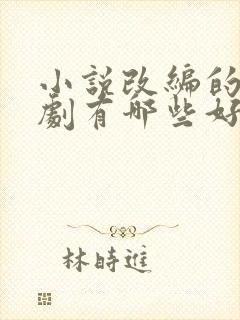 小說改編的
劇有哪些好
林時進